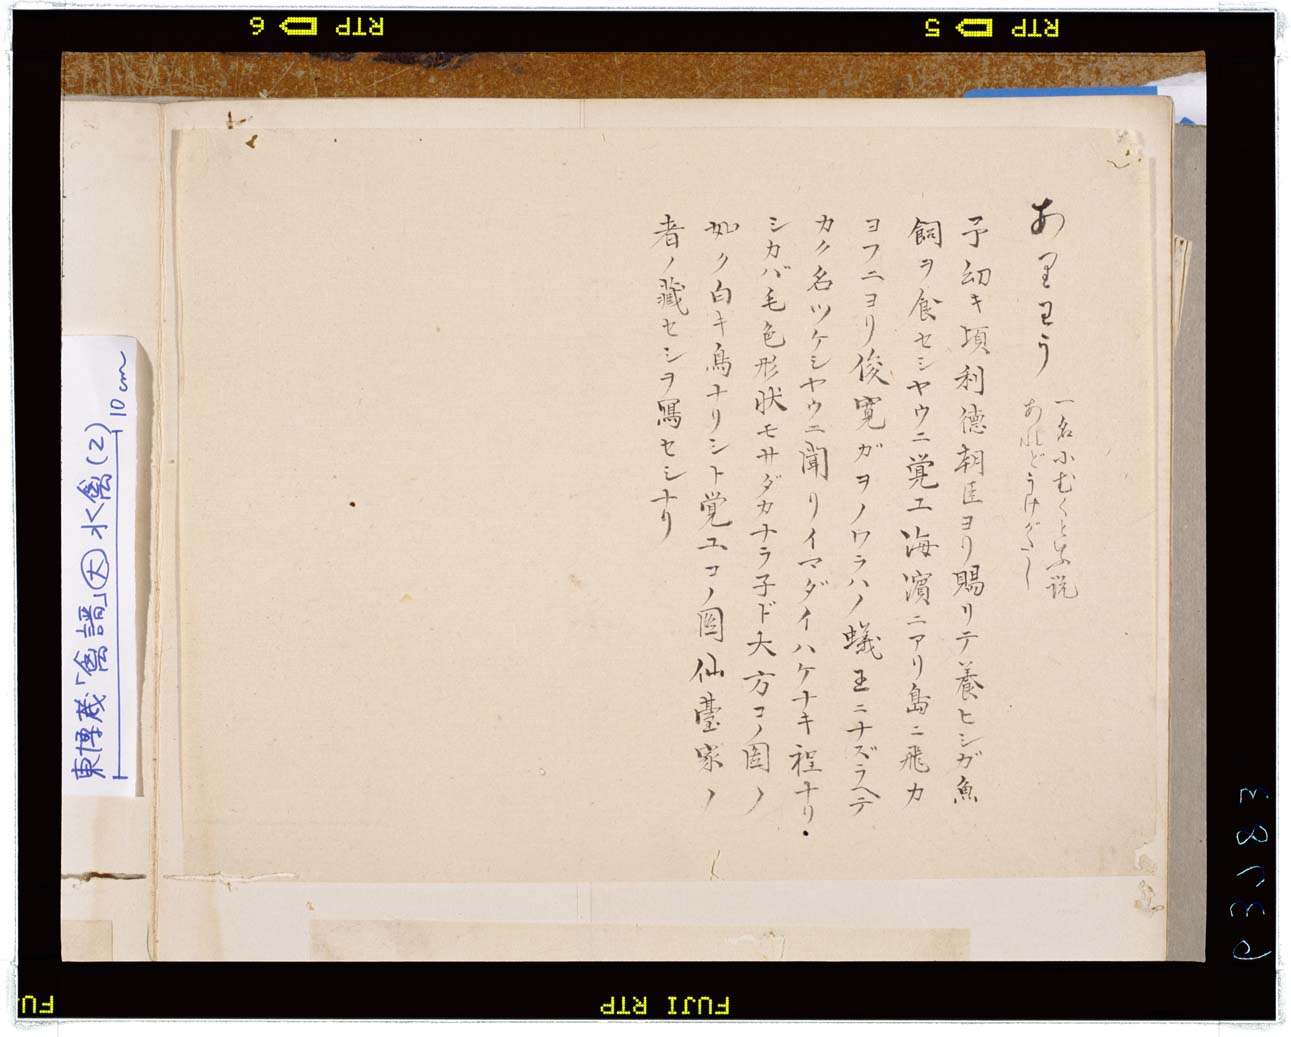 ありわう
一名小むくと云説
あれどうけがたし
予幼キ頃利徳朝臣ヨリ賜リテ養ヒシガ魚
飼ヲ食セシヤウニ覚エ海濱ニアリ島ニ飛カ
ヨフニヨリ俊寛ガヲノワラハノ蟻王ニナズラヘテ
カク名ツケシヤウニ聞リイマダイハケナキ程ナリ・
シカバ毛色形状モサダカナラ子ド大方コノ圖ノ
如ク白キ鳥ナリシト覚ユコノ圖仙臺家ノ
者ノ藏セシヲ冩セシナリ
東博蔵「禽譜」大 水禽(2)
10cm
RTP 5
RTP 6
FUJI RTP
FU
P3J83